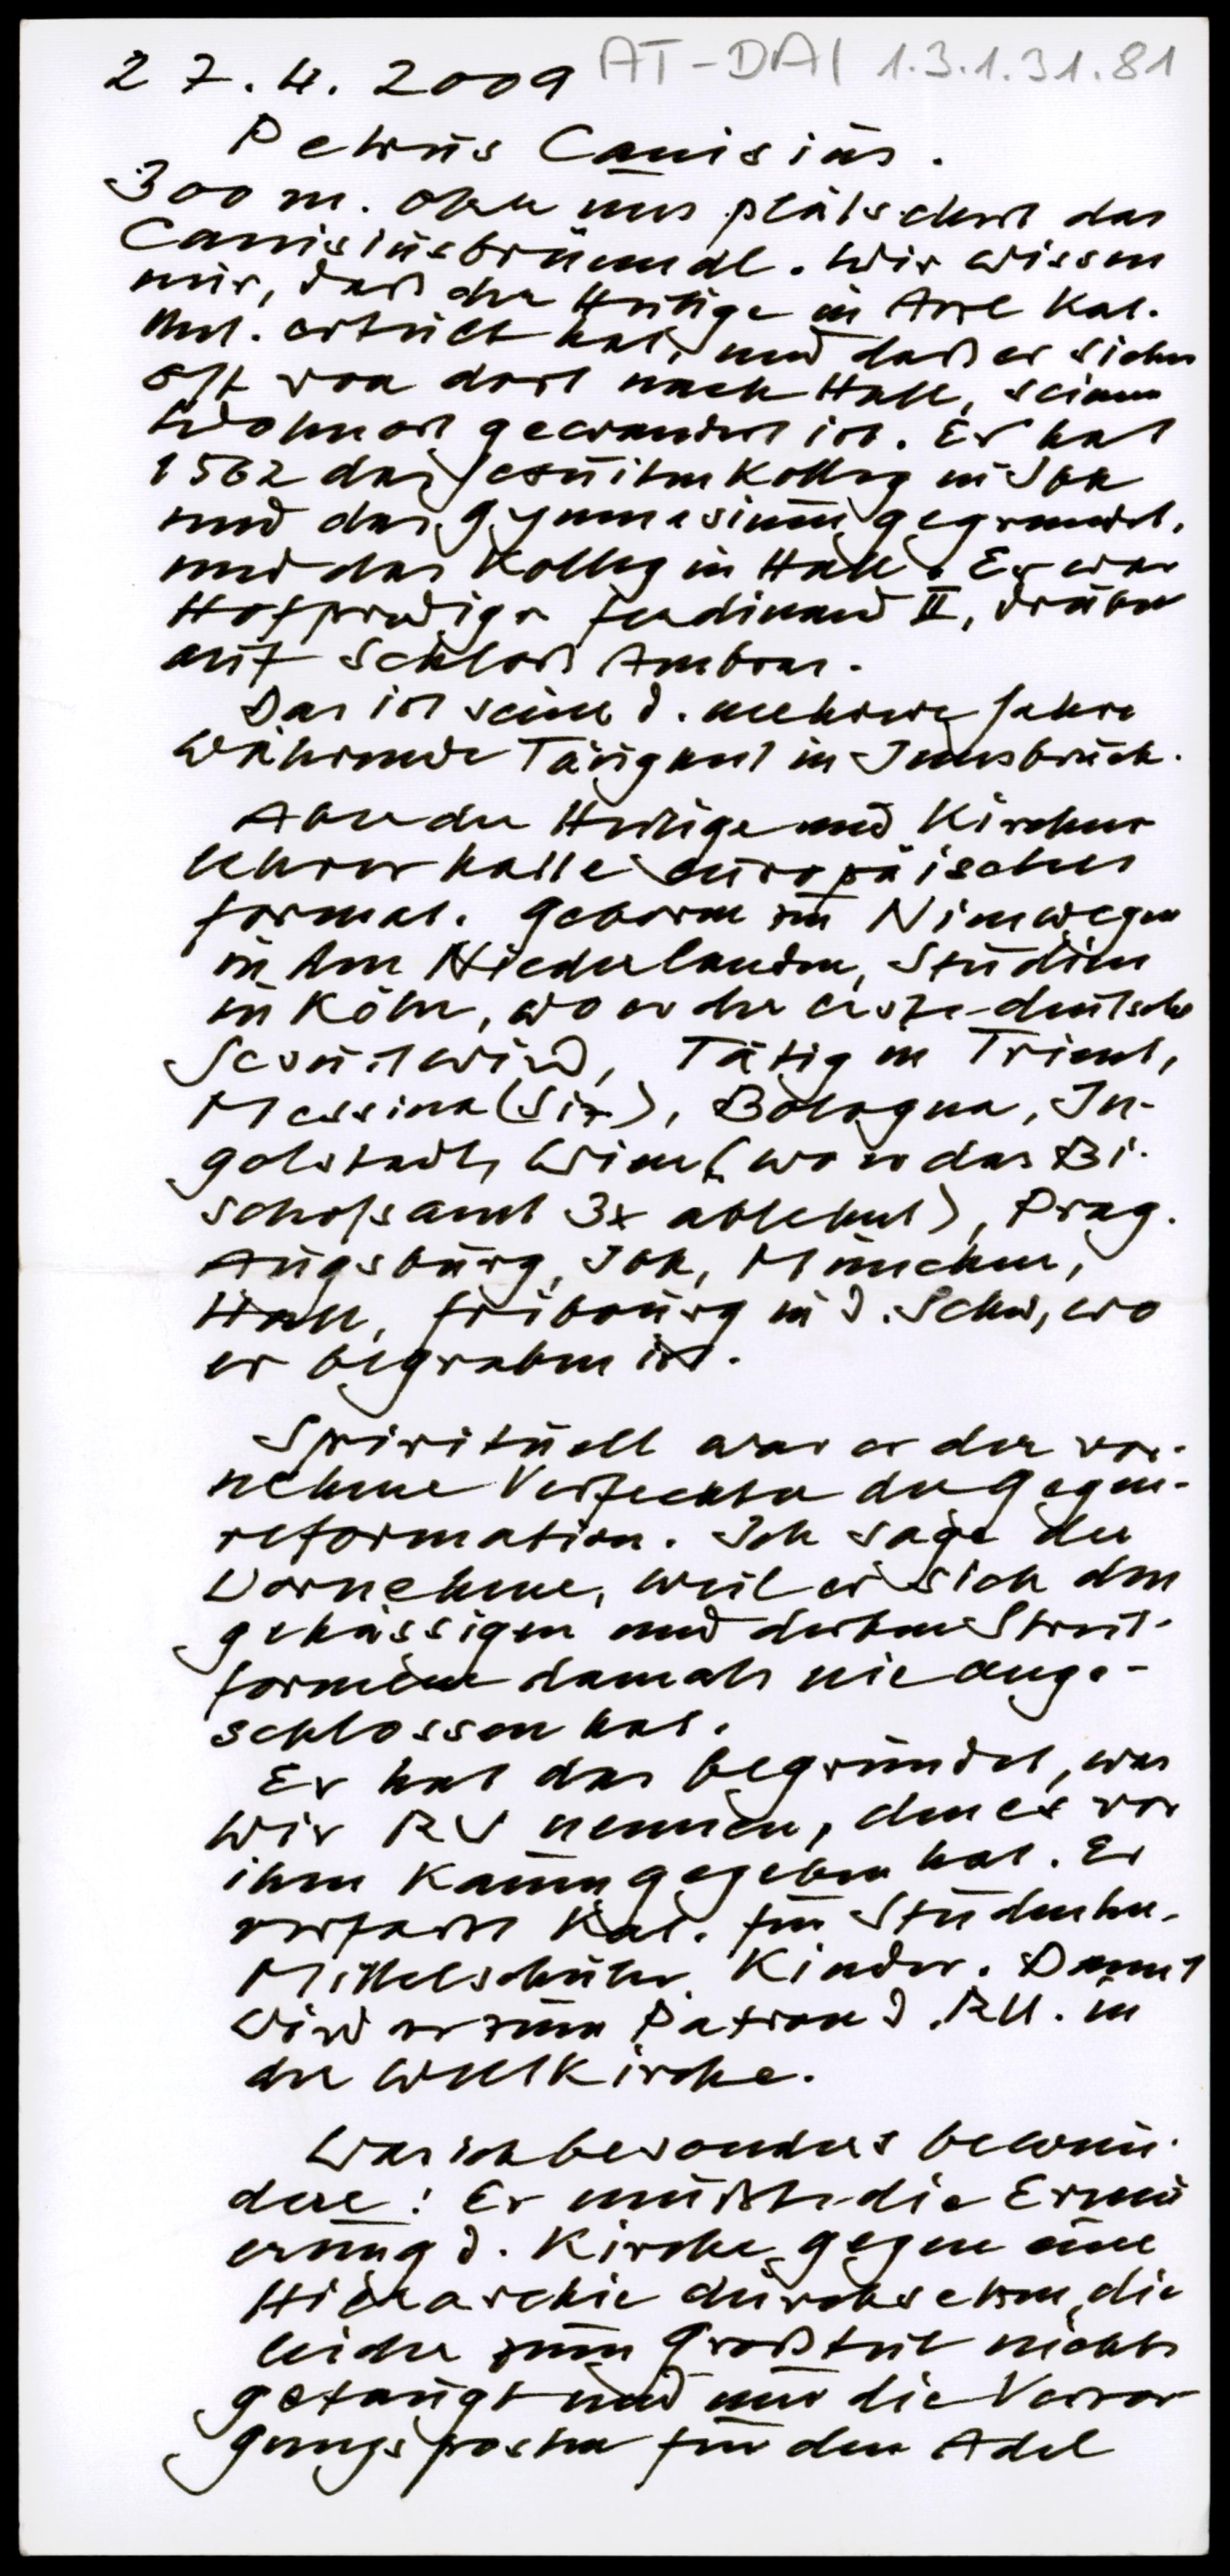 27.4.2009 AT-DAI 1.3.1.31.81
Petrus Canisius.
300 m. ober uns plätschert das
Canisiusbründl. Wir wissen
nur, daß der Heilige in Arzl Kat.
Unt. erteilt hat, und daß er sicher
oft von dort nach Hall, seinem
Wohnort gewandert ist. Er hat
1562 das Jesuitenkolleg in Ibk
und das Gymnasium gegründet,
und das Kolleg in Hall. Er war
Hofprediger Ferdinand II, drüben
auf Schloß Ambras.
Das ist seine d. mehrere Jahre
währende Tätigkeit in Innsbruck.
Aber der Heilige und Kirchen
lehrer hatte europäisches
Format. Geboren in Nimwegen
in den Niederlanden, Studien
in Köln, wo er der erste deutsche
Jesuit wird, Tätig in Trient,
Messina (Siz), Bologna, In-
golstadt, Wien (wo er das Bi-
schofsamt 3x ablehnt), Prag.
Augsburg, Ibk, München,
Hall, Fribourg in d. Schw, wo
er begraben ist.
Spirituell war er der vor-
nehme Verfechter der Gegen-
reformation. Ich sage der
Vornehme, weil er sich den
gehässigen und derben Streit-
formen damals nie ange-
schlossen hat.
Er hat das begründet, was
wir RU nennen, den es vor
ihm kaum gegeben hat. Er
verfaßt Kat. für Studenten-
Mittelschüler, Kinder. Damit
wird er zum Patron d. RU. in
der Weltkirche.
Was ich besonders bewun-
dere: Er mußte die Erneu
erung d. Kirche gegen eine
Hierarchie durchsetzen, die
leider zum Großteil nichts
getaugt und nur die Versor
gungsposten für den Adel